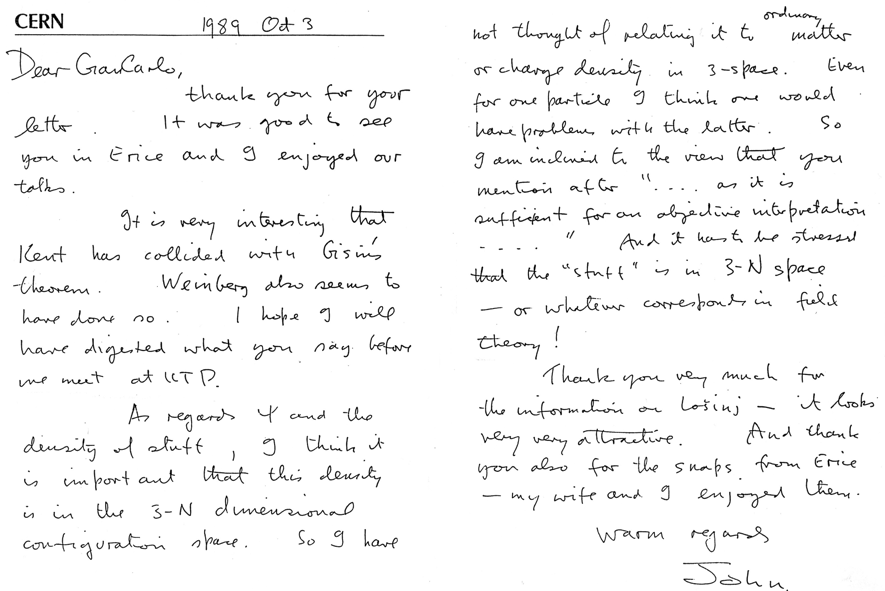 CERN 1989 Oct 3
Dear GianCarlo,
thank you for your
letter. It was good to see
you in Erice and I enjoyed our
talks.
It is very interesting that
Kent has collided with Gisin's
theorem. Weinberg also seems to
have done so. I hope I will
have digested what you say before
we meet at ICTP.
As regards Ψ and the
density of stuff, I think it
is important that this density
is in the 3-N dimensional
configuration space. So I have
not thought of relating it to ordinary matter
or charge density in 3-space. Even
for one particle I think one would
have problems with the latter. So
I am inclined to the view that you
mention after ".... as it is
sufficient for an objective interpretation
...." And it has to be stressed
that the "stuff" is in 3-N space
— or whatever corresponds in field
theory!
Thank you very much for
the information on Lošinj — it looks
very very attractive. And thank
you also for the snaps from Erice
— my wife and I enjoyed them.
Warm regards
John.